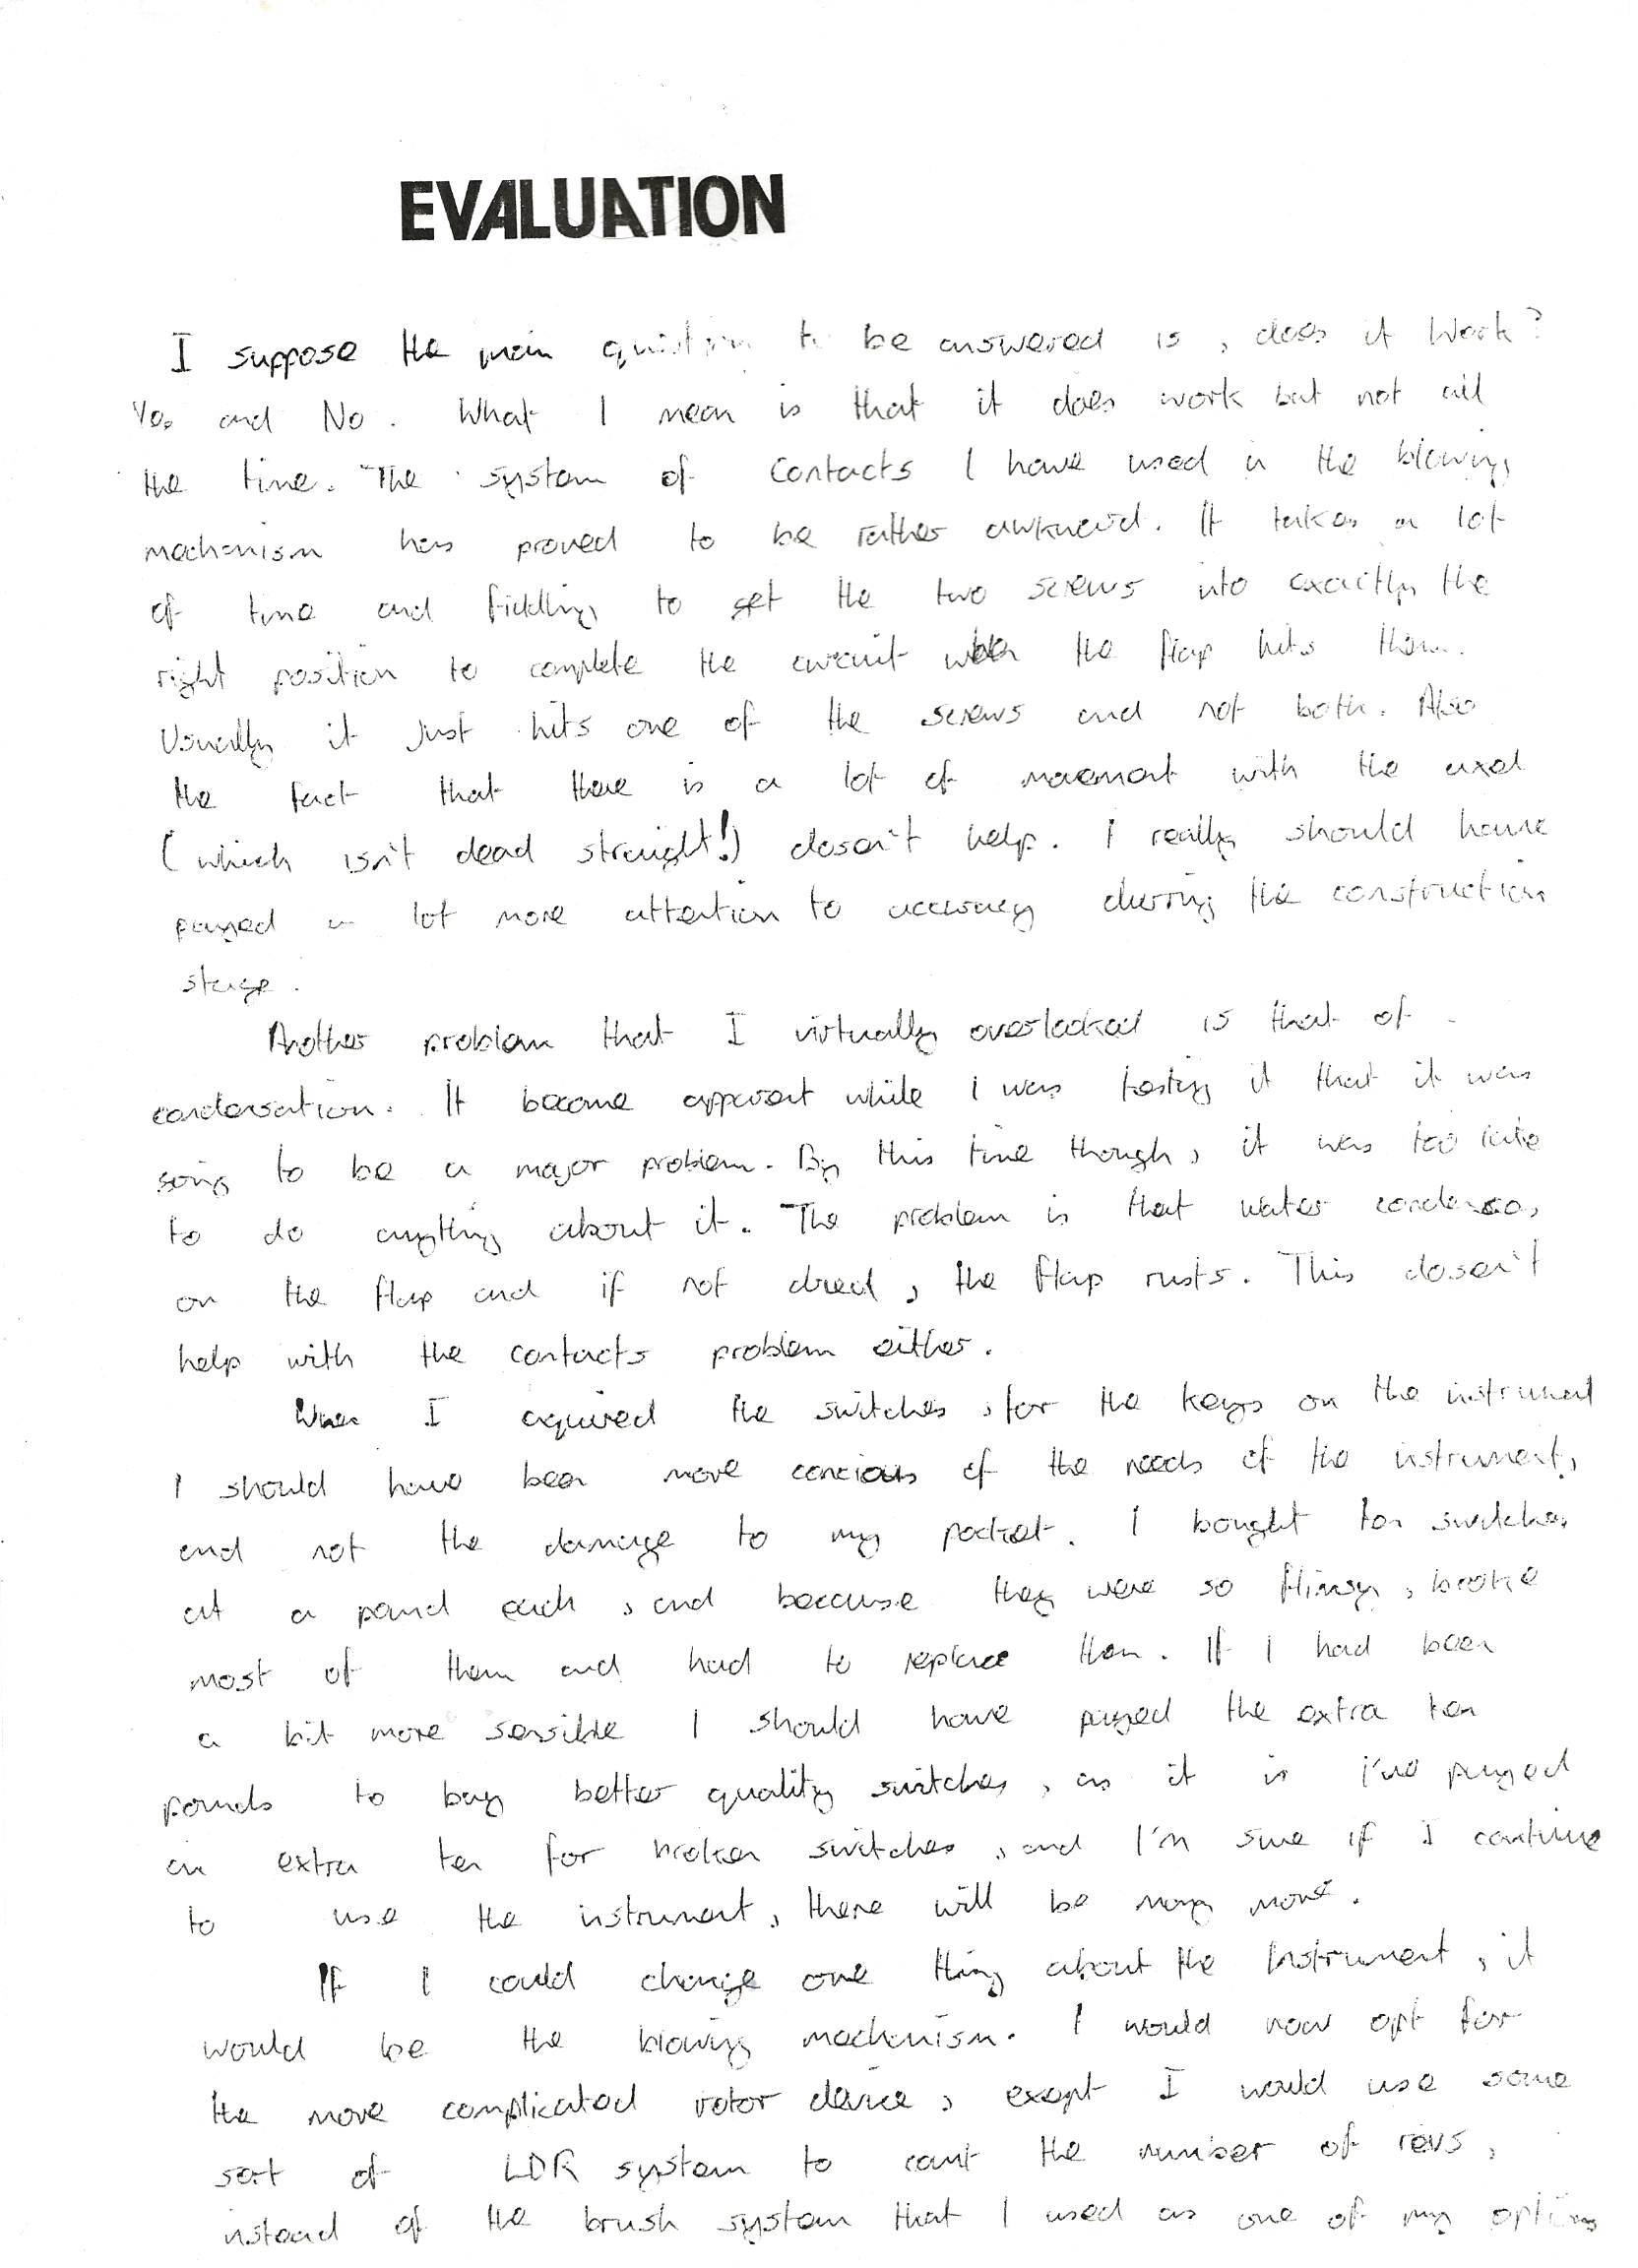 EVALUATION
I suppose the main question to be answered is, does it work?
Yes and No. What I mean is that it does work but not all
the time. The system of contacts I have used in the blowing
mechanism has proved to be rather awkward. It takes a lot
of time and fiddling to get the two screws into exactly the
right position to complete the circuit when the flap hits them.
Usually it just hits one of the screws and not both. Also
the fact that there is a lot of movement with the axel
(which isn't dead straight!) doesn't help. I really should have
payed a lot more attention to accuracy during the construction
stage.
Another problem that I virtually overlooked is that of
condensation. It became apparent while I was testing it that it was
going to be a major problem. By this time though, it was too late
to do anything about it. The problem is that water condenses
on the flap and if not dried, the flap rusts. This doesn't
help with the contacts problem either.
When I aquired the switches, for the keys on the instrument
I should have been more concious of the needs of the instrument,
and not the damage to my pocket. I bought ten switches
at a pound each, and because they were so flimsy, broke
most of them and had to replace them. If I had been
a bit more sensible I should have payed the extra ten
pounds to buy better quality switches, as it is I've payed
an extra ten for broken switches, and I'm sure if I continue
to use the instrument, there will be many more.
If I could change one thing about the Instrument, it
would be the blowing mechanism. I would now opt for
the more complicated rotor device, exept I would use some
sort of LDR system to count the number of revs,
instead of the brush system that I used as one of my options